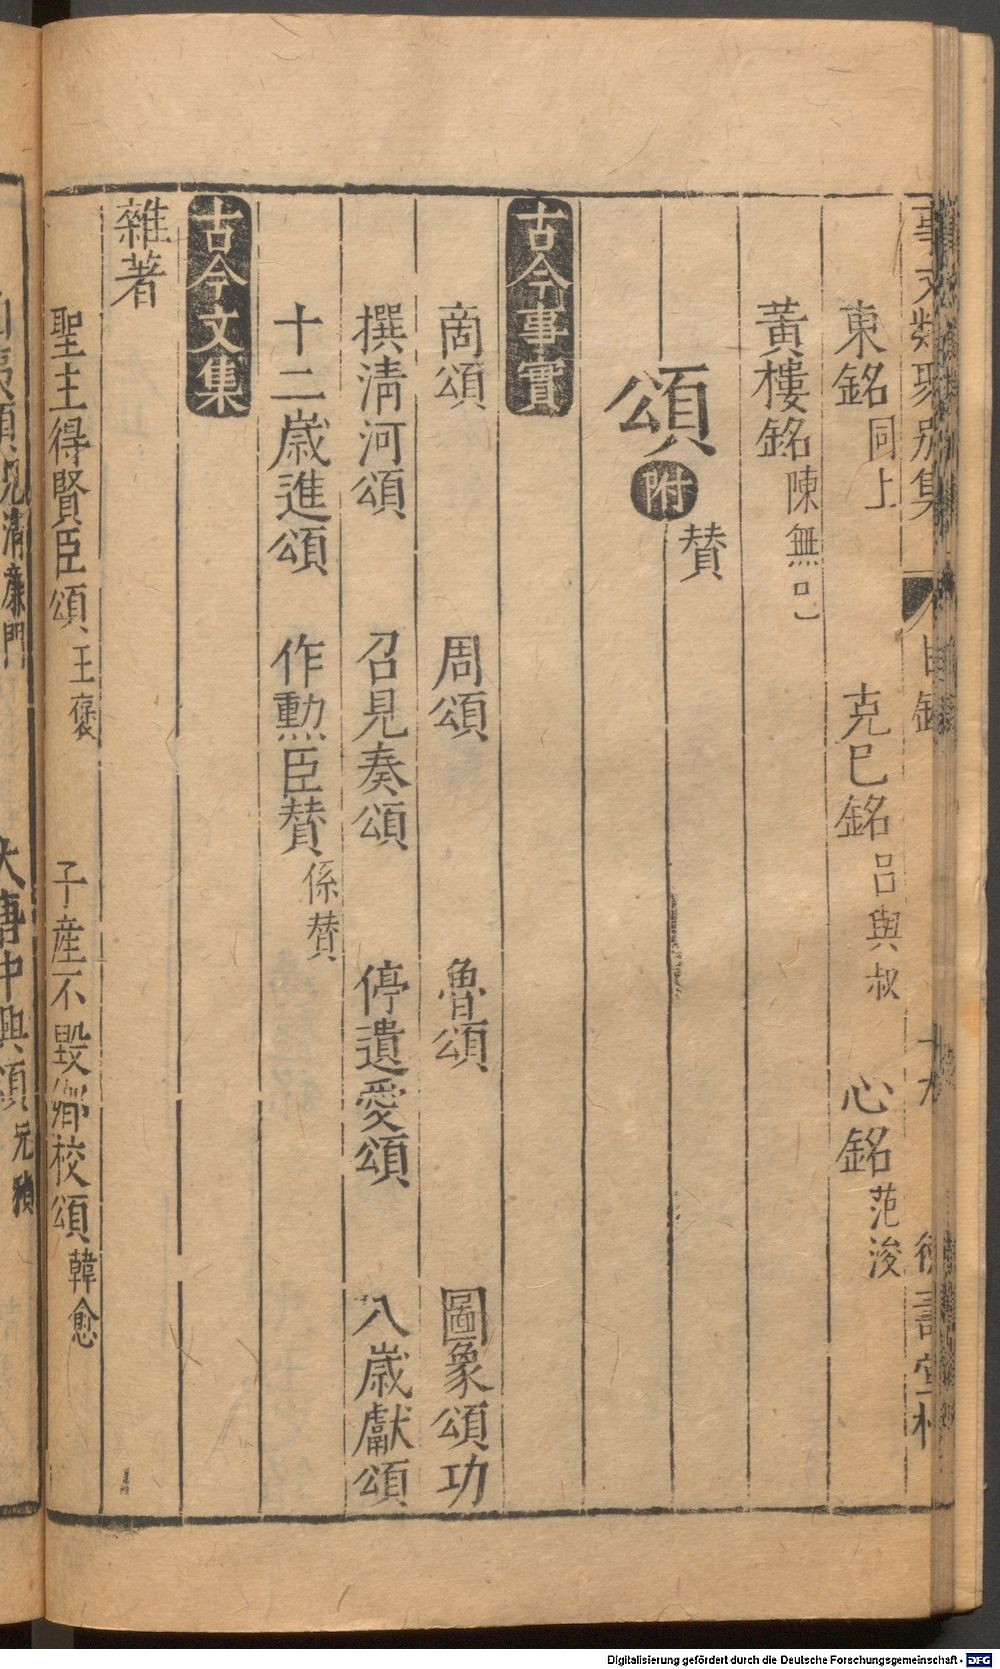 事文類聚別集 目錄
東銘同上 克己銘呂與叔 心銘范浚
黃樓銘陳無己
頌附贊
古今事實
商頌 周頌 魯頌 圖象頌功
撰淸河頌 召見奏頌 停遺愛頌 八歲獻頌
十二歲進頌 作勲臣贊係贊
古今文集
雜著
聖主得賢臣頌王褒 子產不毀鄉校頌韓愈
大唐中興頌
Digitalisierung gefördert durch die Deutsche Forschungsgemeinschaft - DFG